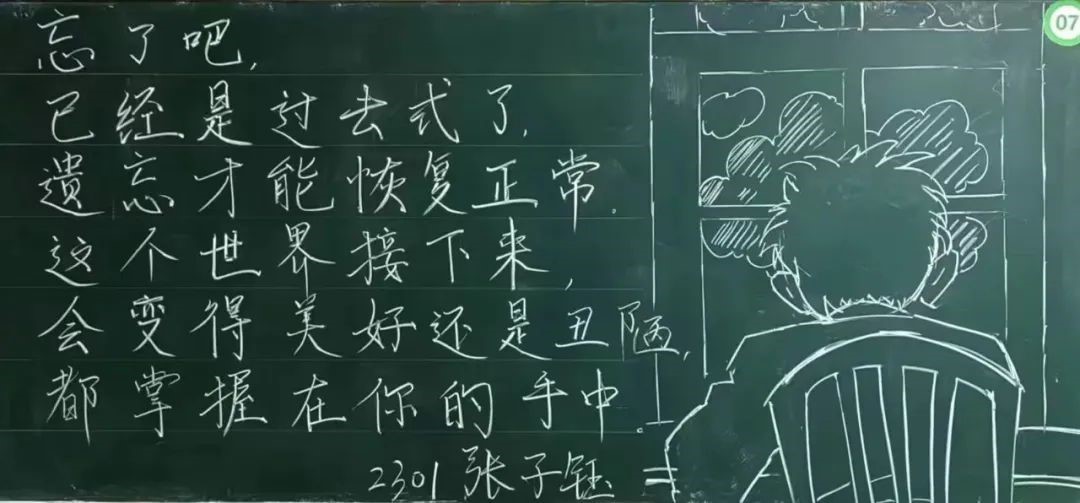 忘了吧,
已经是过去式了,
遗忘才能恢复正常.
这个世界接下来,
会变得美好还是丑陋,
都掌握在你的手中.
2301 张子钰
07